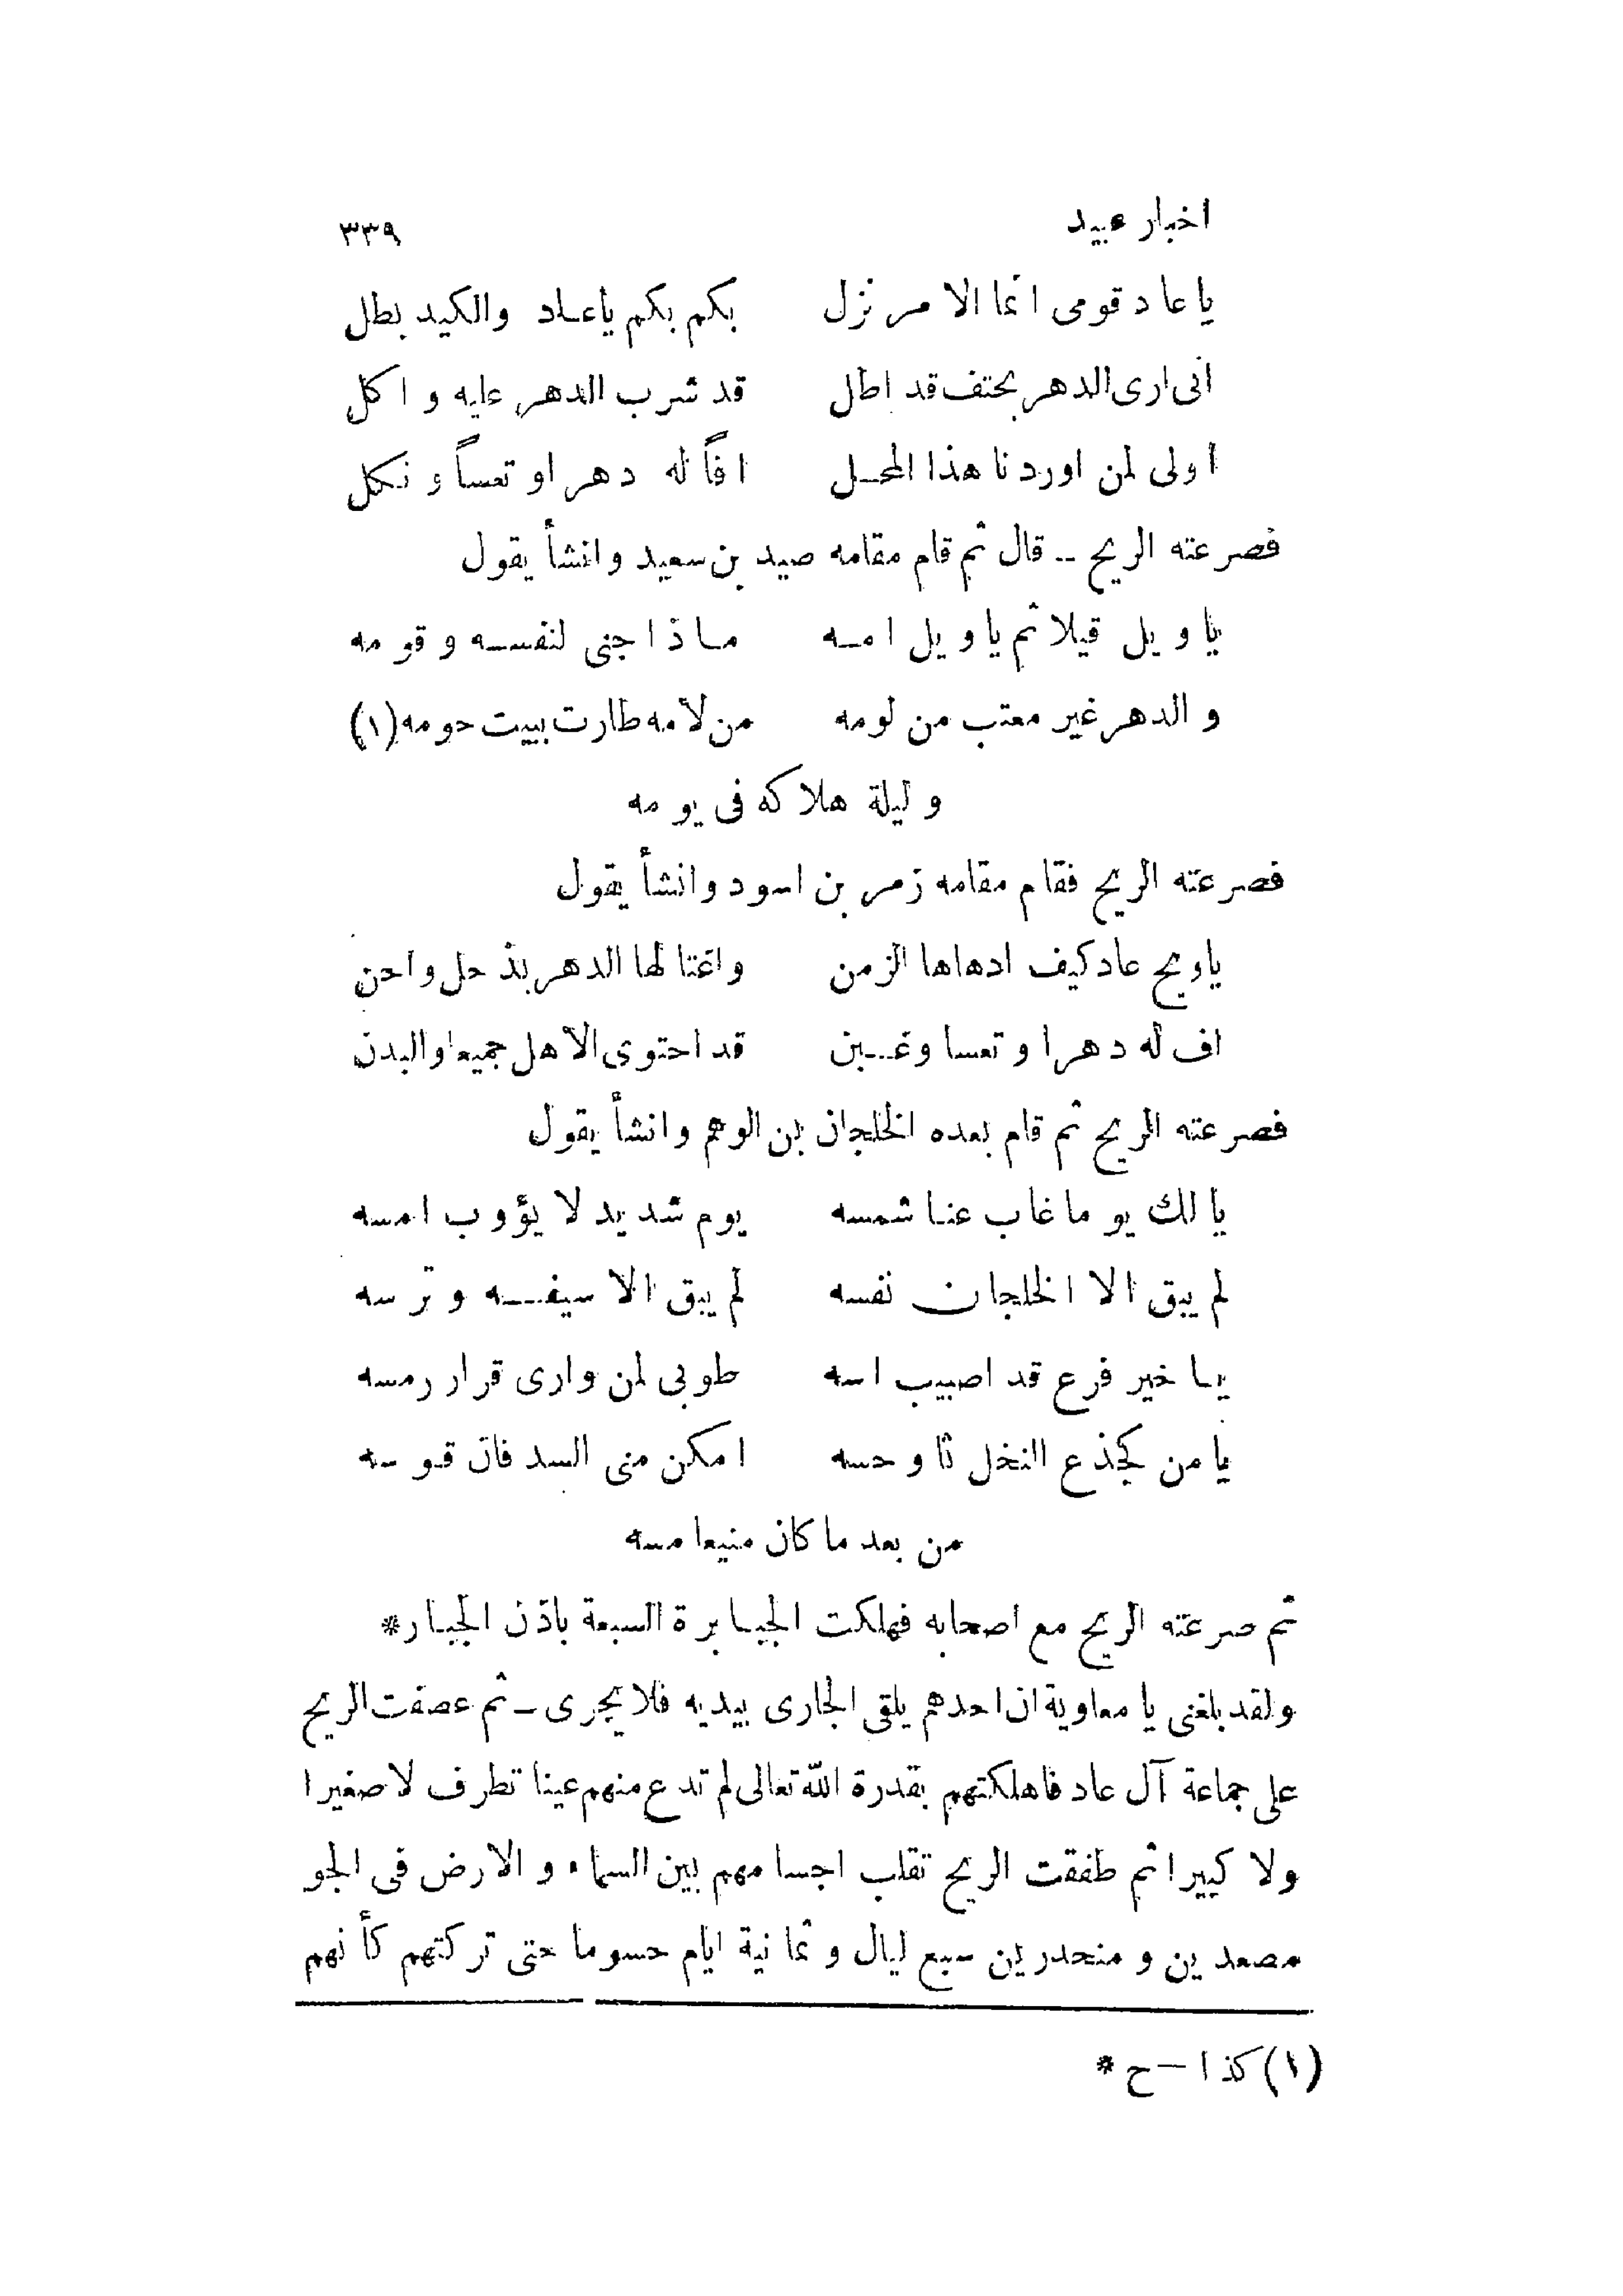 اخبار عبيد ٣٣٩
يا عاد قومى انما الامر نزل بكم بكم ياعاد والكيد بطل
انى ارى الدهر بحتف قد اطل قد شرب الدهر عليه و اكل
اولى لمن اوردنا هذا المحل افاً له دهرا و تعساً و نكل
فصرعته الريح -- قال ثم قام مقامه صيد بن سعيد وانشأ يقول
يا ويل قيلا ثم يا ويل امه ماذا جنى لنفسه و قومه
و الدهر غير معتب من لومه من لامه طارت ببيت حومه (١)
و ليلة هلاكه فى يومه
فصرعته الريح فقام مقامه زمر بن اسود وانشأ يقول
ياويح عاد كيف ادهاها الزمن واغتالها الدهر بذحل واحن
اف له دهرا و تعسا وغبن قد احتوى الاهل جميعا والبدن
فصرعته الريح ثم قام بعده الخلجان بن الوهم وانشأ يقول
يا لك يوما غاب عنا شمسه يوم شديد لا يؤوب امسه
لم يبق الا الخلجان نفسه لم يبق الا سيفه و ترسه
يا خير فرع قد اصيب اسه طوبى لمن وارى قرار رمسه
يا من كجذع النخل ثاو حسه امكن منى السد فان قوسه
من بعد ما كان منيعا مسه
ثم صرعته الريح مع اصحابه فهلكت الجبابرة السبعة باذن الجبار*
ولقد بلغنى يا معاوية ان احدهم يلقى الجارى بيديه فلا يجرى – ثم عصفت الريح
على جماعة آل عاد فاهلكتهم بقدرة الله تعالى لم تدع منهم عينا تطرف لا صغيرا
ولا كبيرا ثم طفقت الريح تقلب اجسامهم بين السماء و الارض فى الجو
مصعدين و منحدرين سبع ليال و ثمانية ايام حسوما حتى تركتهم كأنهم
(١) كذا – ح *